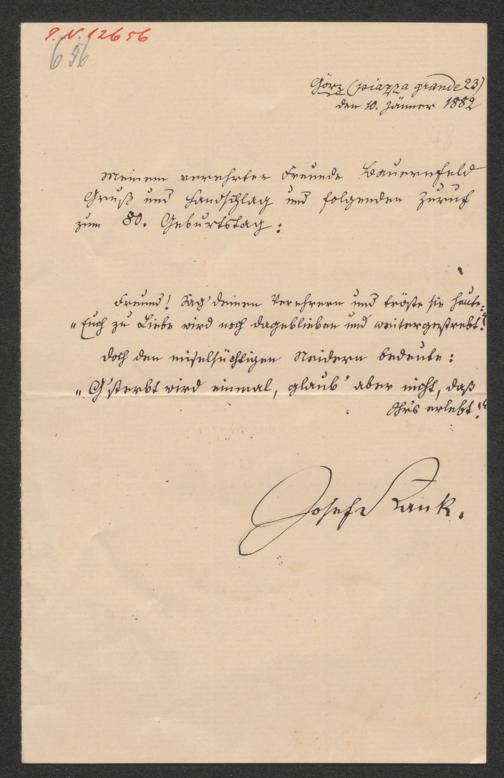 I.N. 12656
656
Görz (piazza grande 23)
den 10. Jänner 1882
Meinem verehrten Freunde Bauernfeld
Gruß und Handschlag und folgenden Zuruf
zum 80. Geburtstag:
Freund! Sag' deinen Verehrern und tröste sie heute:
„Euch zu Liebe wird noch dageblieben und weitergestrebt!“
Doch den miselsüchtigen Neidern bedeute:
„G'sterbt wird einmal, glaub' aber nicht, daß
Ihr's erlebt!“
Josef Rank.